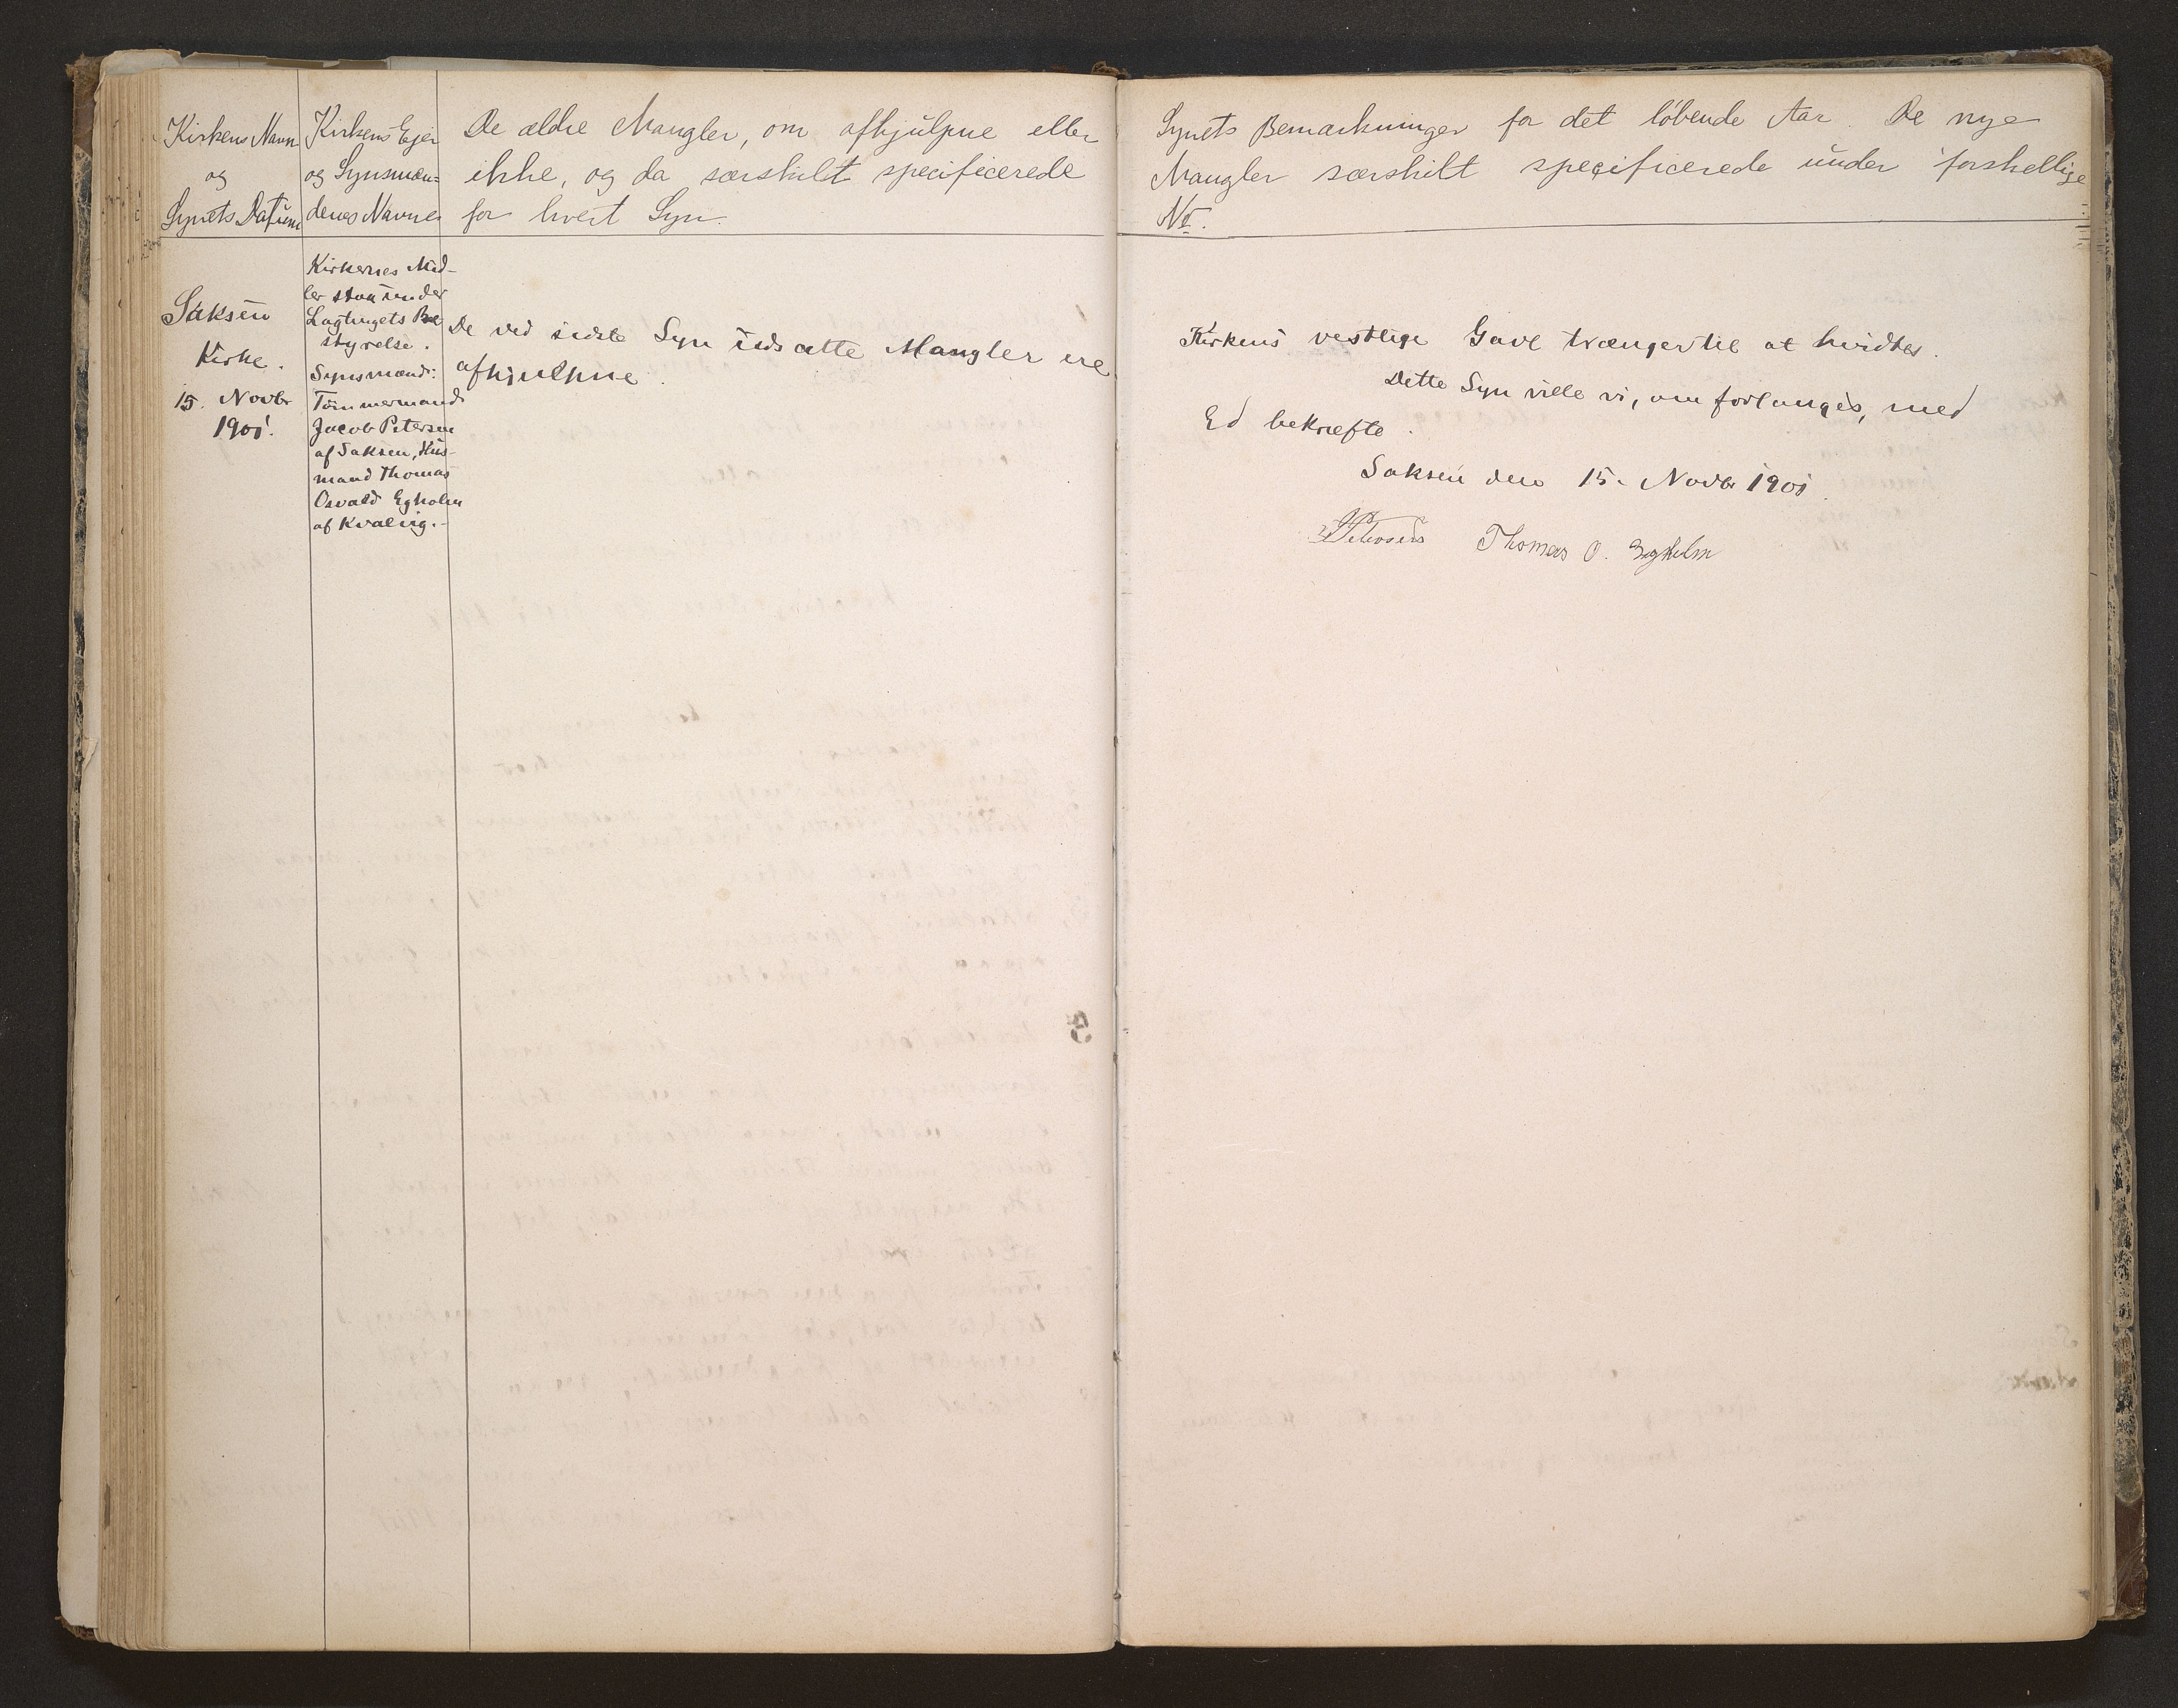 Kirkens Navn
og
Synets Datum
Kirkens Ejer
og Synsmæn=
denes Navne
De ældre Mangler, om afhjulpne eller
ikke, og da særskilt specificerede
for hvert Syn.
Saksen
Kirke.
15. Novbr
1901.
Kirkernes Mid-
ler staa under
Lagtingets Be
styrelse.
Synsmænd:
Tömmermand
Jacob Petersen
af Saksen, Hus-
mand Thomas
Osvald Egholm
af Kvalvig.-
De ved sidste Syn udsatte Mangler ere
afhjulpne.
Synets Bemærkninger for det löbende Aar. De nye
Mangler særskilt specificerede under forskellige
No.
Kirkens vestlige Gavl trænger til at hvidtes.
Dette Syn ville vi, om forlanges, med
Ed bekræfte.
Saksen den 15. Novbr 1901.
Petersen Thomas O. Egholm